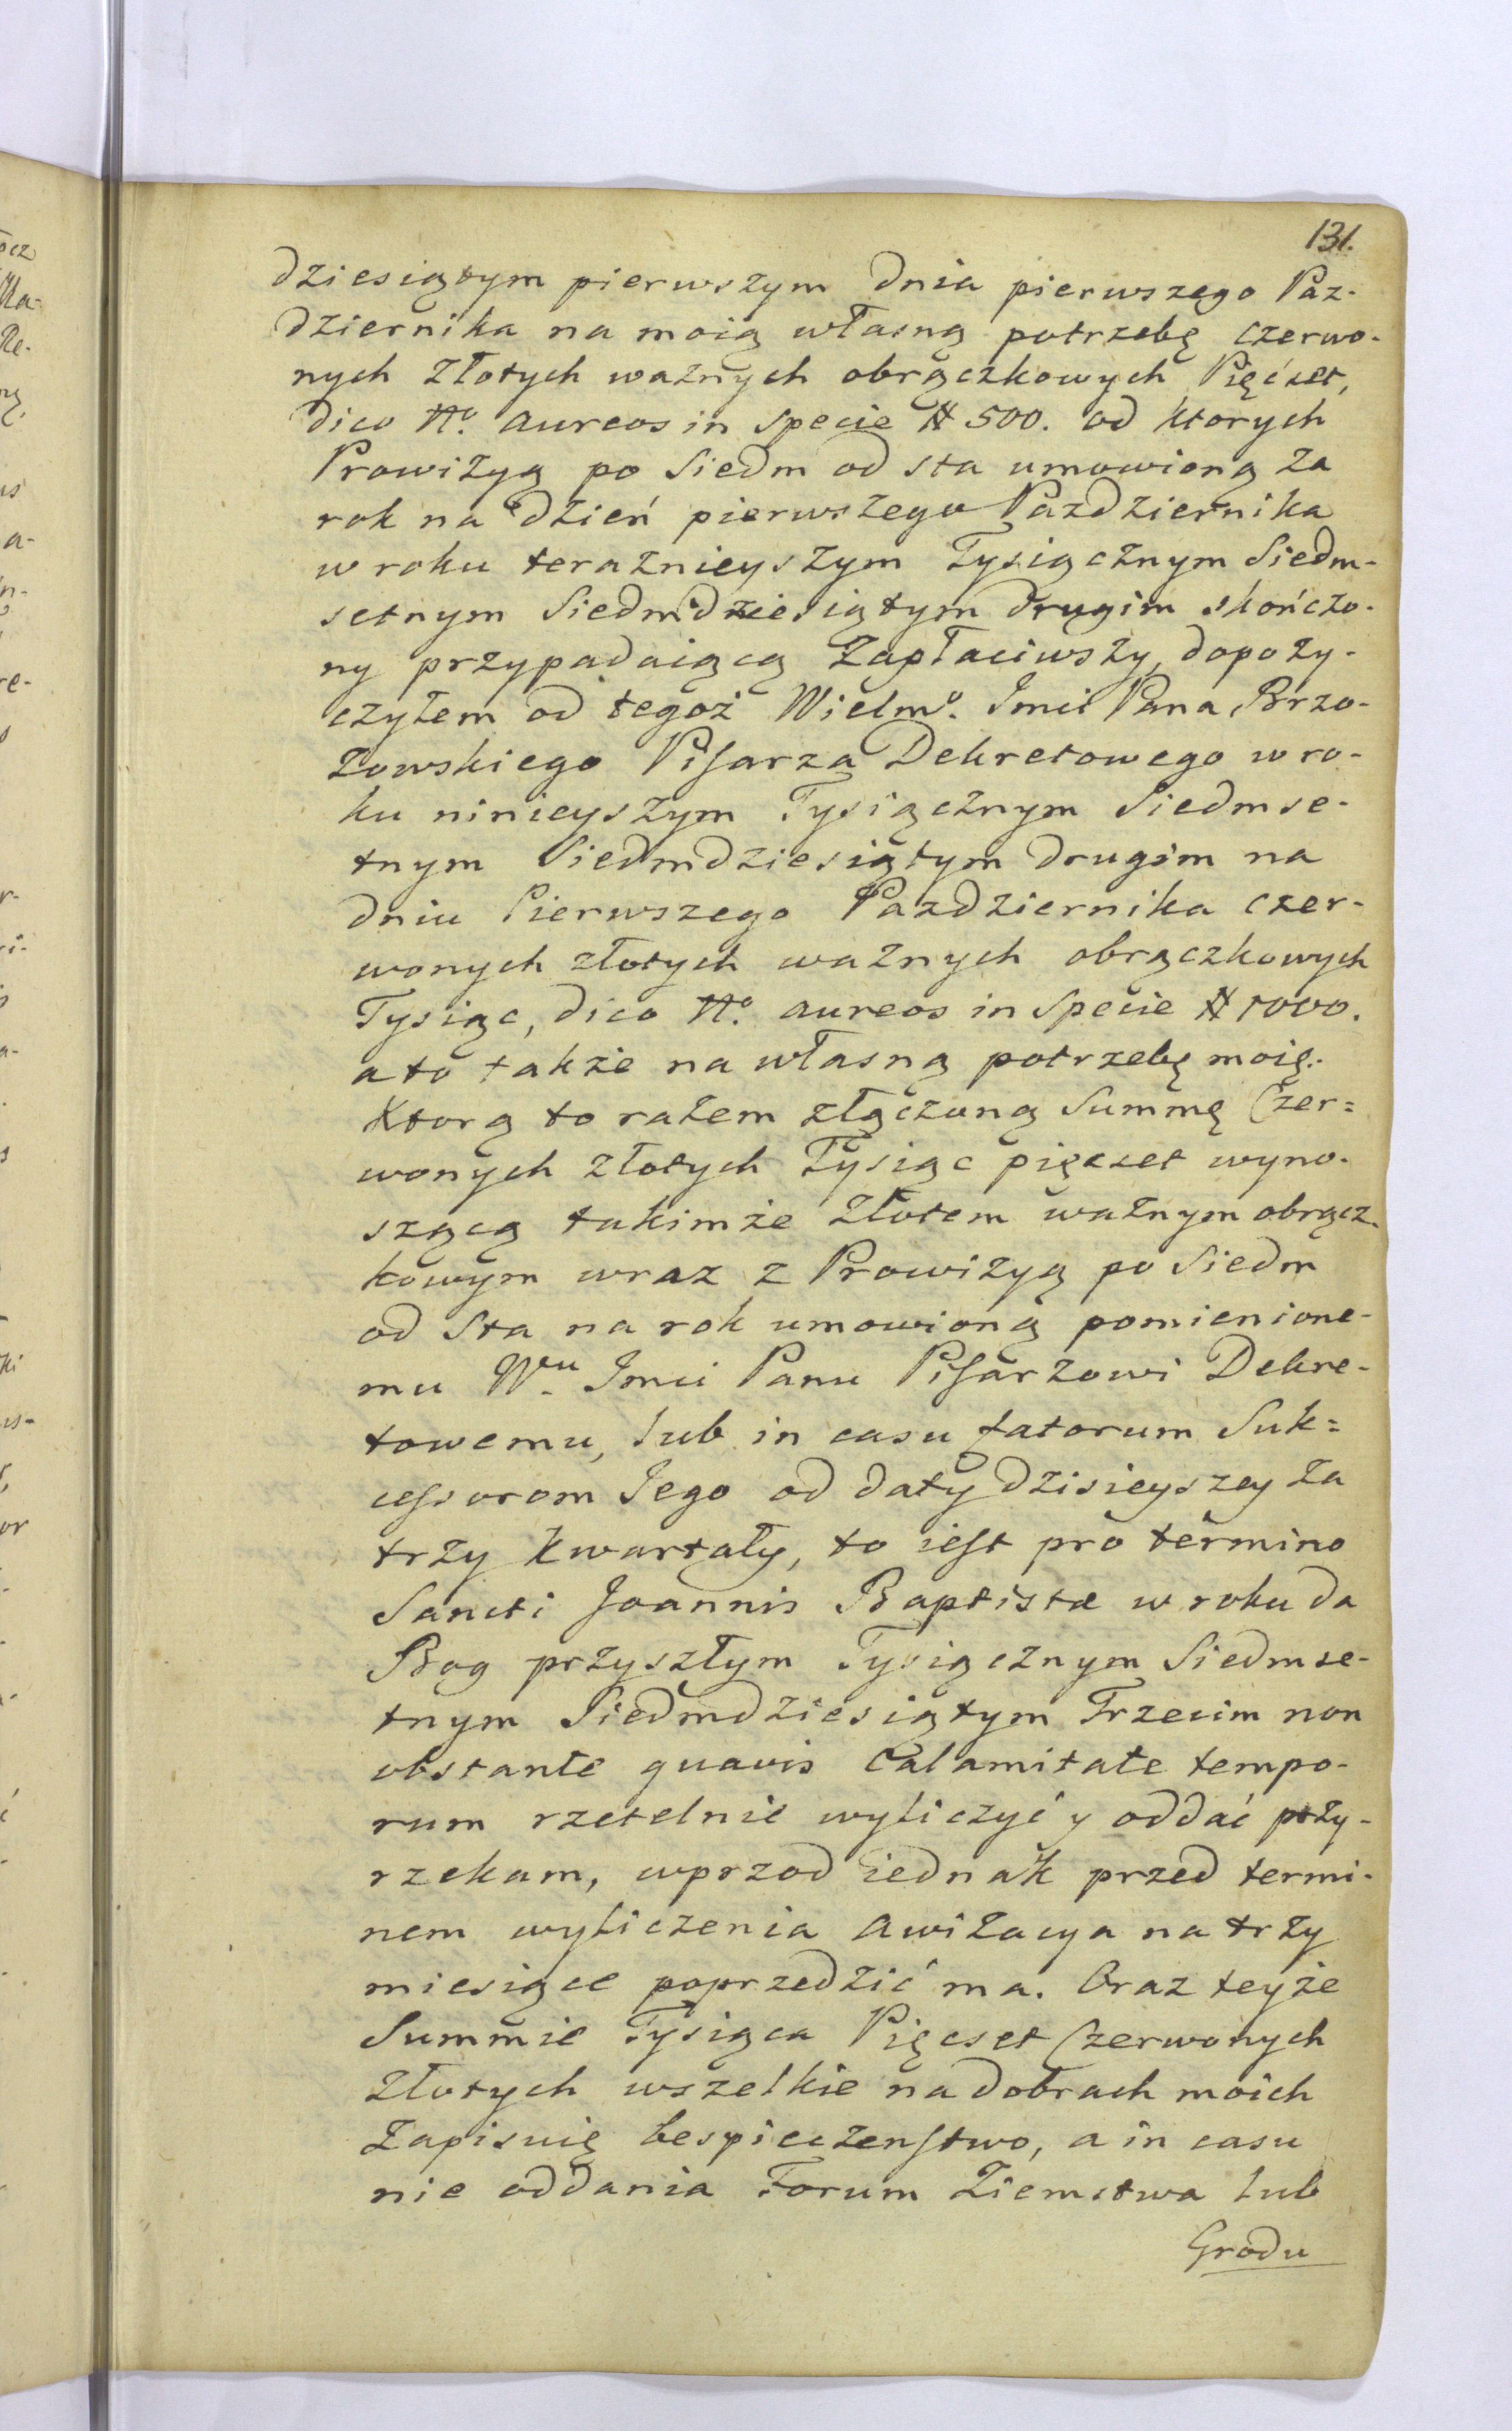 131.
dziesiątym pierwszym dnia pierwszego Paz-
dziernika na moią własną potrzebę czerwo-
nych złotych ważnych obrączkowych Pięćset,
dico No. aureos in specie # 500. od ktorych
Prowizyą po siedm od sta umowioną za
rok na dzień pierwszego Pazdziernika
w roku teraznieyszym Tysiącznym Siedm-
setnym Siedmdziesiątym drugim skończo-
ny przypadaiącą zapłaciwszy, dopoży-
czyłem od tegoż Wielmo. Imci Pana Brzo-
zowskiego Pisarza Dekretowego w ro-
ku ninieyszym Tysiącznym Siedmse-
tnym Siedmdziesiątym drugim na
dniu Pierwszego Pazdziernika czer-
wonych złotych ważnych obrączkowych
Tysiąc, dico No. aureos in specie # 1000.
a to także na własną potrzebę moię.
Ktorą to razem złączoną Summę Czer=
wonych złotych Tysiąc pięcset wyno-
szącą takimże złotem ważnym obrącz-
kowym wraz z Prowizyą po siedm
od sta na rok umowioną pomienione-
mu Wu. Imci Panu Pisarzowi Dekre-
towemu, lub in casu fatorum Suk=
cessorom Jego od daty dzisieyszey za
trzy kwartały, to iest pro termino
Sancti Joannis Baptistæ w roku da
Bog przyszłym Tysiącznym Siedmse-
tnym Siedmdziesiątym Trzecim non
obstante quavis calamitate tempo-
rum rzetelnie wyliczyć y oddać przy-
rzekam, wprzod iednak przed termi-
nem wyliczenia awizacya na trzy
miesiące poprzedzić ma. Oraz teyże
Summie Tysiąca Pięcset Czerwonych
złotych wszelkie na dobrach moich
zapisuię bespieczenstwo, a in casu
nie oddania Forum Ziemstwa lub
Grodu